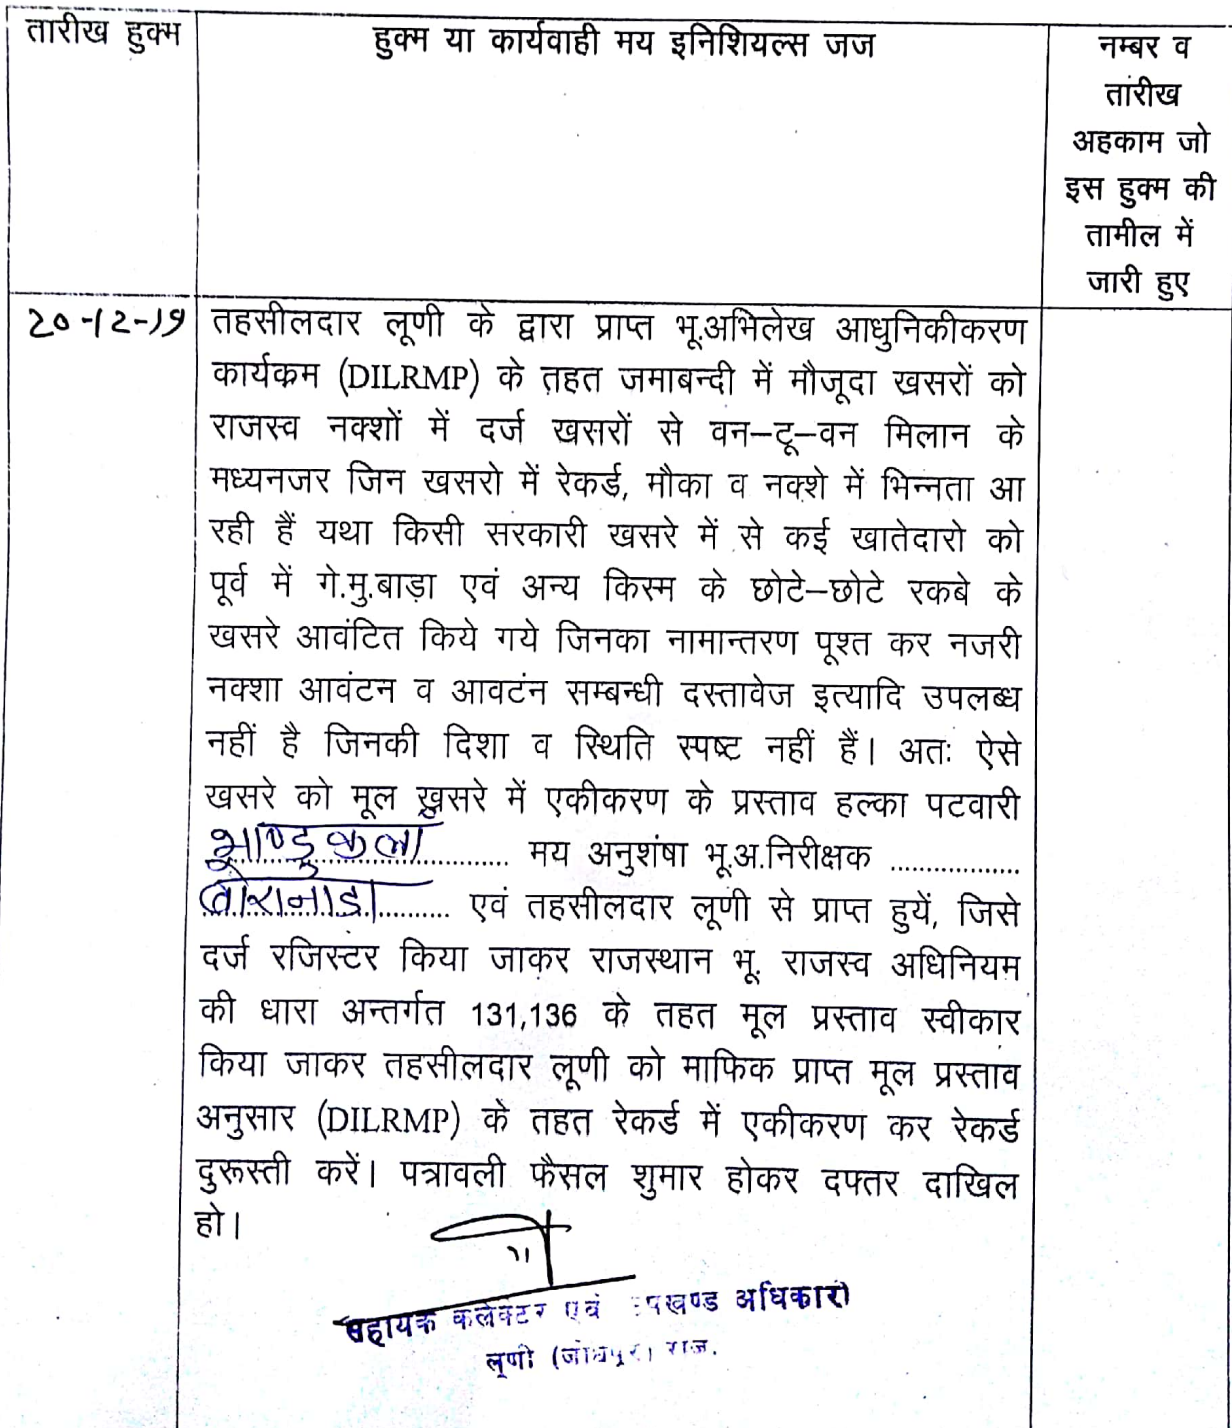 तारीख हुक्म
हुक्म या कार्यवाही मय इनिशियल्स जज
नम्बर व
तारीख
अहकाम जो
इस हुक्म की
तामील में
जारी हुए
20-12-19
तहसीलदार लूणी के द्वारा प्राप्त भू.अभिलेख आधुनिकीकरण
कार्यक्रम (DILRMP) के तहत जमाबन्दी में मौजूदा खसरों को
राजस्व नक्शों में दर्ज खसरों से वन–टू–वन मिलान के
मध्यनजर जिन खसरो में रेकर्ड, मौका व नक्शे में भिन्नता आ
रही हैं यथा किसी सरकारी खसरे में से कई खातेदारो को
पूर्व में गे.मु.बाड़ा एवं अन्य किस्म के छोटे–छोटे रकबे के
खसरे आवंटित किये गये जिनका नामान्तरण पूश्त कर नजरी
नक्शा आवंटन व आवटंन सम्बन्धी दस्तावेज इत्यादि उपलब्ध
नहीं है जिनकी दिशा व स्थिति स्पष्ट नहीं हैं। अतः ऐसे
खसरे को मूल खुसरे में एकीकरण के प्रस्ताव हल्का पटवारी
भाण्डुकला .......... मय अनुशंषा भू.अ.निरीक्षक ..................
बोरानाडा .......... एवं तहसीलदार लूणी से प्राप्त हुयें, जिसे
दर्ज रजिस्टर किया जाकर राजस्थान भू. राजस्व अधिनियम
की धारा अन्तर्गत 131,136 के तहत मूल प्रस्ताव स्वीकार
किया जाकर तहसीलदार लूणी को माफिक प्राप्त मूल प्रस्ताव
अनुसार (DILRMP) के तहत रेकर्ड में एकीकरण कर रेकर्ड
दुरूस्ती करें। पत्रावली फैसल शुमार होकर दफ्तर दाखिल
हो।
सहायक कलेक्टर एवं उपखण्ड अधिकारी
लूणी (जोधपुर) राज.